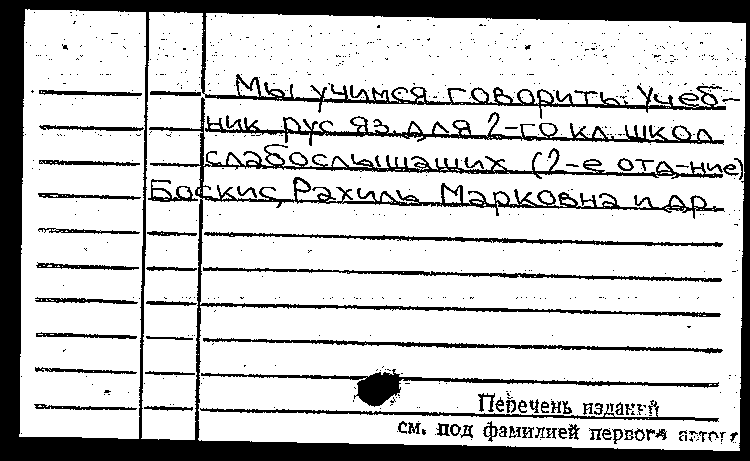 Мы учимся говорить. Учеб-
ник рус. яз. для 2-го кл. школ
слабослышащих (2-е отд-ние)
Боскис, Рахиль Марковна и др.
Перечень изданий
см. под фамилией первого автора